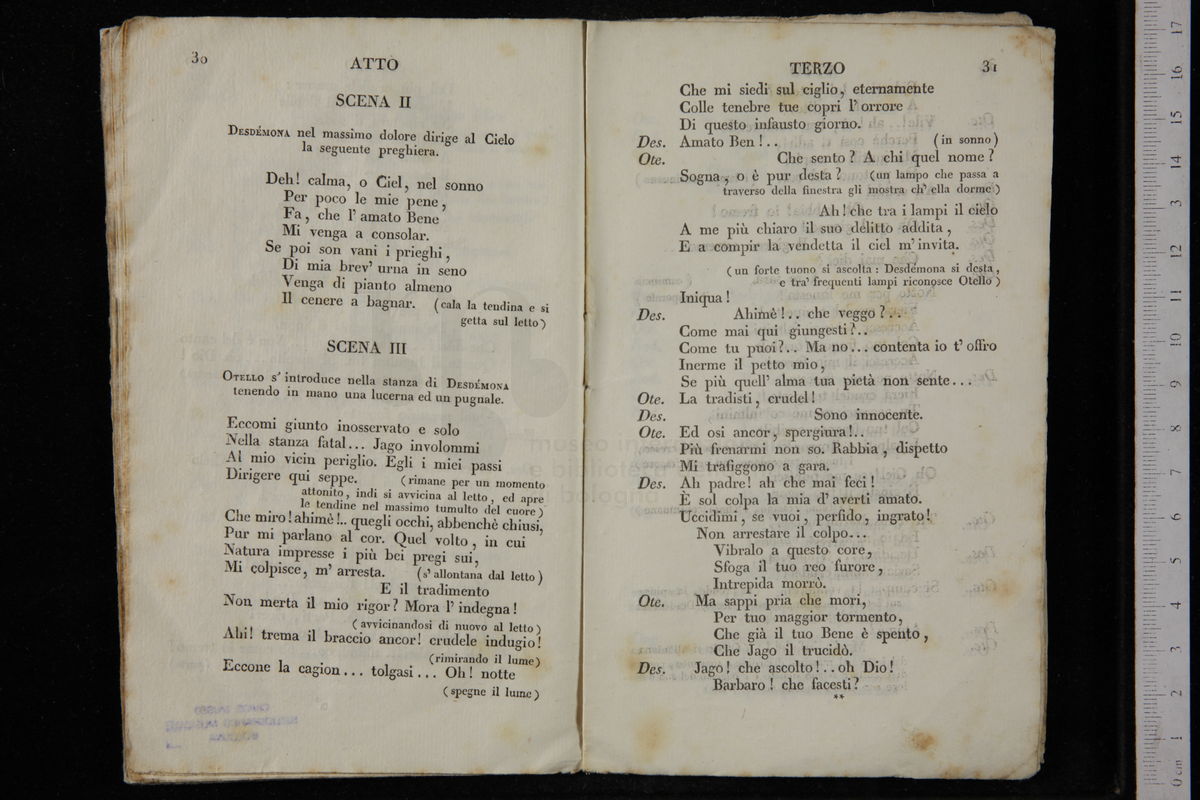 30
ATTO
SCENA II
DESDÉMONA nel massimo dolore dirige al Cielo
la seguente preghiera.
Deh! calma, o Ciel, nel sonno
Per poco le mie pene,
Fa, che l' amato Bene
Mi venga a consolar.
Se poi son vani i prieghi,
Di mia brev' urna in seno
Venga di pianto almeno
Il cenere a bagnar. (cala la tendina e si
getta sul letto)
SCENA III
OTELLO s' introduce nella stanza di DESDÉMONA
tenendo in mano una lucerna ed un pugnale.
Eccomi giunto inosservato e solo
Nella stanza fatal... Jago involommi
Al mio vicin periglio. Egli i miei passi
Dirigere qui seppe. (rimane per un momento
attonito, indi si avvicina al letto, ed apre
le tendine nel massimo tumulto del cuore)
Che miro! ahimè!.. quegli occhi, abbenchè chiusi,
Pur mi parlano al cor. Quel volto, in cui
Natura impresse i più bei pregi sui,
Mi colpisce, m' arresta. (s' allontana dal letto)
E il tradimento
Non merta il mio rigor? Mora l' indegna!
(avvicinandosi di nuovo al letto)
Ahi! trema il braccio ancor! crudele indugio!
(rimirando il lume)
Eccone la cagion... tolgasi... Oh! notte
(spegne il lume)
TERZO
31
Che mi siedi sul ciglio, eternamente
Colle tenebre tue copri l' orrore
Di questo infausto giorno.
Des. Amato Ben!.. (in sonno)
Ote. Che sento? A chi quel nome?
Sogna, o è pur desta? (un lampo che passa a
traverso della finestra gli mostra ch' ella dorme)
Ah! che tra i lampi il cielo
A me più chiaro il suo delitto addita,
E a compir la vendetta il ciel m' invita.
(un forte tuono si ascolta: Desdémona si desta,
e tra' frequenti lampi riconosce Otello)
Iniqua!
Des. Ahimè!.. che veggo?..
Come mai qui giungesti?..
Come tu puoi?.. Ma no... contenta io t' offro
Inerme il petto mio,
Se più quell' alma tua pietà non sente...
Ote. La tradisti, crudel!
Des. Sono innocente.
Ote. Ed osi ancor, spergiura!..
Più frenarmi non so. Rabbia, dispetto
Mi trafiggono a gara.
Des. Ah padre! ah che mai feci!
È sol colpa la mia d' averti amato.
Uccidimi, se vuoi, perfido, ingrato!
Non arrestare il colpo...
Vibralo a questo core,
Sfoga il tuo reo furore,
Intrepida morrò.
Ote. Ma sappi pria che mori,
Per tuo maggior tormento,
Che già il tuo Bene è spento,
Che Jago il trucidò.
Des. Jago! che ascolto!.. oh Dio!
Barbaro! che facesti?
**
0 cm 1 2 3 4 5 6 7 8 9 10 11 12 13 14 15 16 17